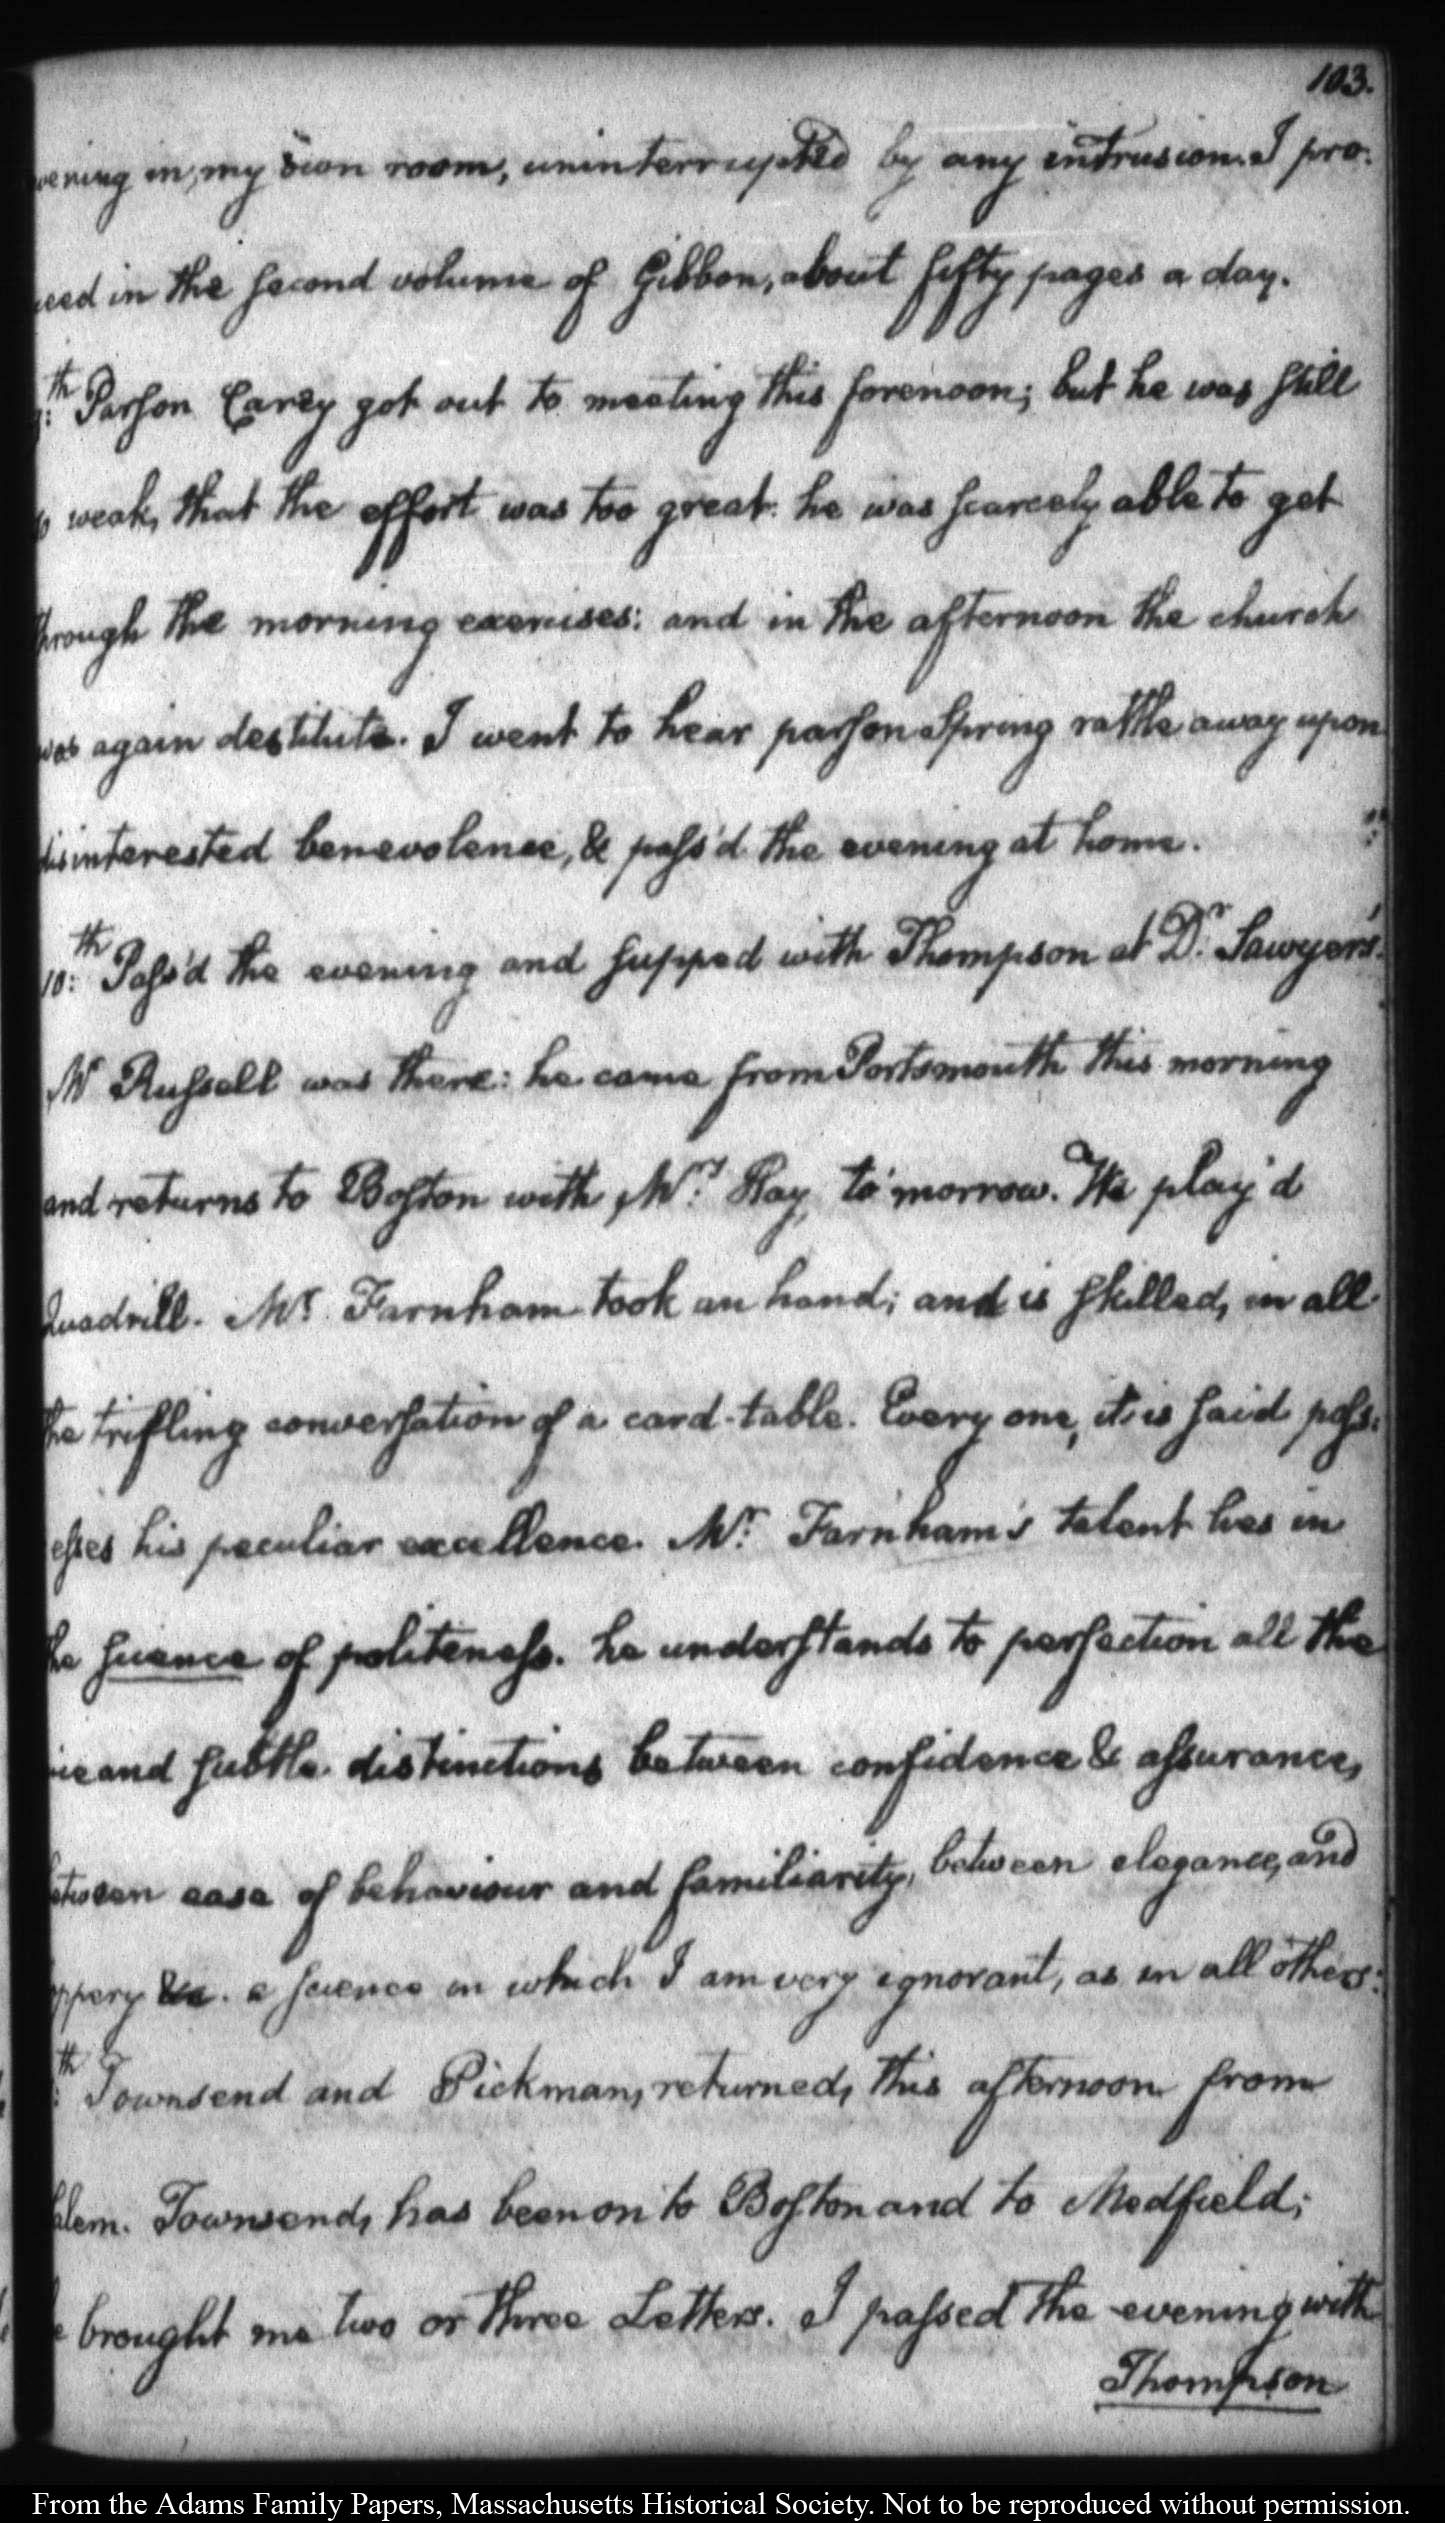 103.
vening in my own room, uninterrupted by any intrusion. I pro-
ceed in the second volume of Gibbon, about fifty pages a day.
9:th Parson Carey got out to meeting this forenoon; but he was still
so weak, that the effort was too great: he was scarcely able to get
through the morning exercises: and in the afternoon the church
was again destitute. I went to hear parson Spring rattle away upon
disinterested benevolence, & pass'd the evening at home.
10:th Pass'd the evening and supped with Thompson at Dr. Sawyer's.
Mr Russell was there: he came from Portsmouth this morning
and returns to Boston with Mrs. Ray, to morrow. We play'd
Quadrill. Mr. Farnham took an hand; and is skilled, in all
the trifling conversation of a card-table. Every one, it is said poss-
esses his peculiar excellence. Mr. Farnham's talent lies in
the science of politeness. he understands to perfection all the
nice and subtle distinctions between confidence & assurance,
between ease of behaviour and familiarity, between elegance, and
oppery &c. a science in which I am very ignorant, as in all others:
:th Townsend and Pickman, returned, this afternoon from
Salem. Townsend, has been on to Boston and to Medfield;
he brought me two or three Letters. I passed the evening with
Thompson
From the Adams Family Papers, Massachusetts Historical Society. Not to be reproduced without permission.